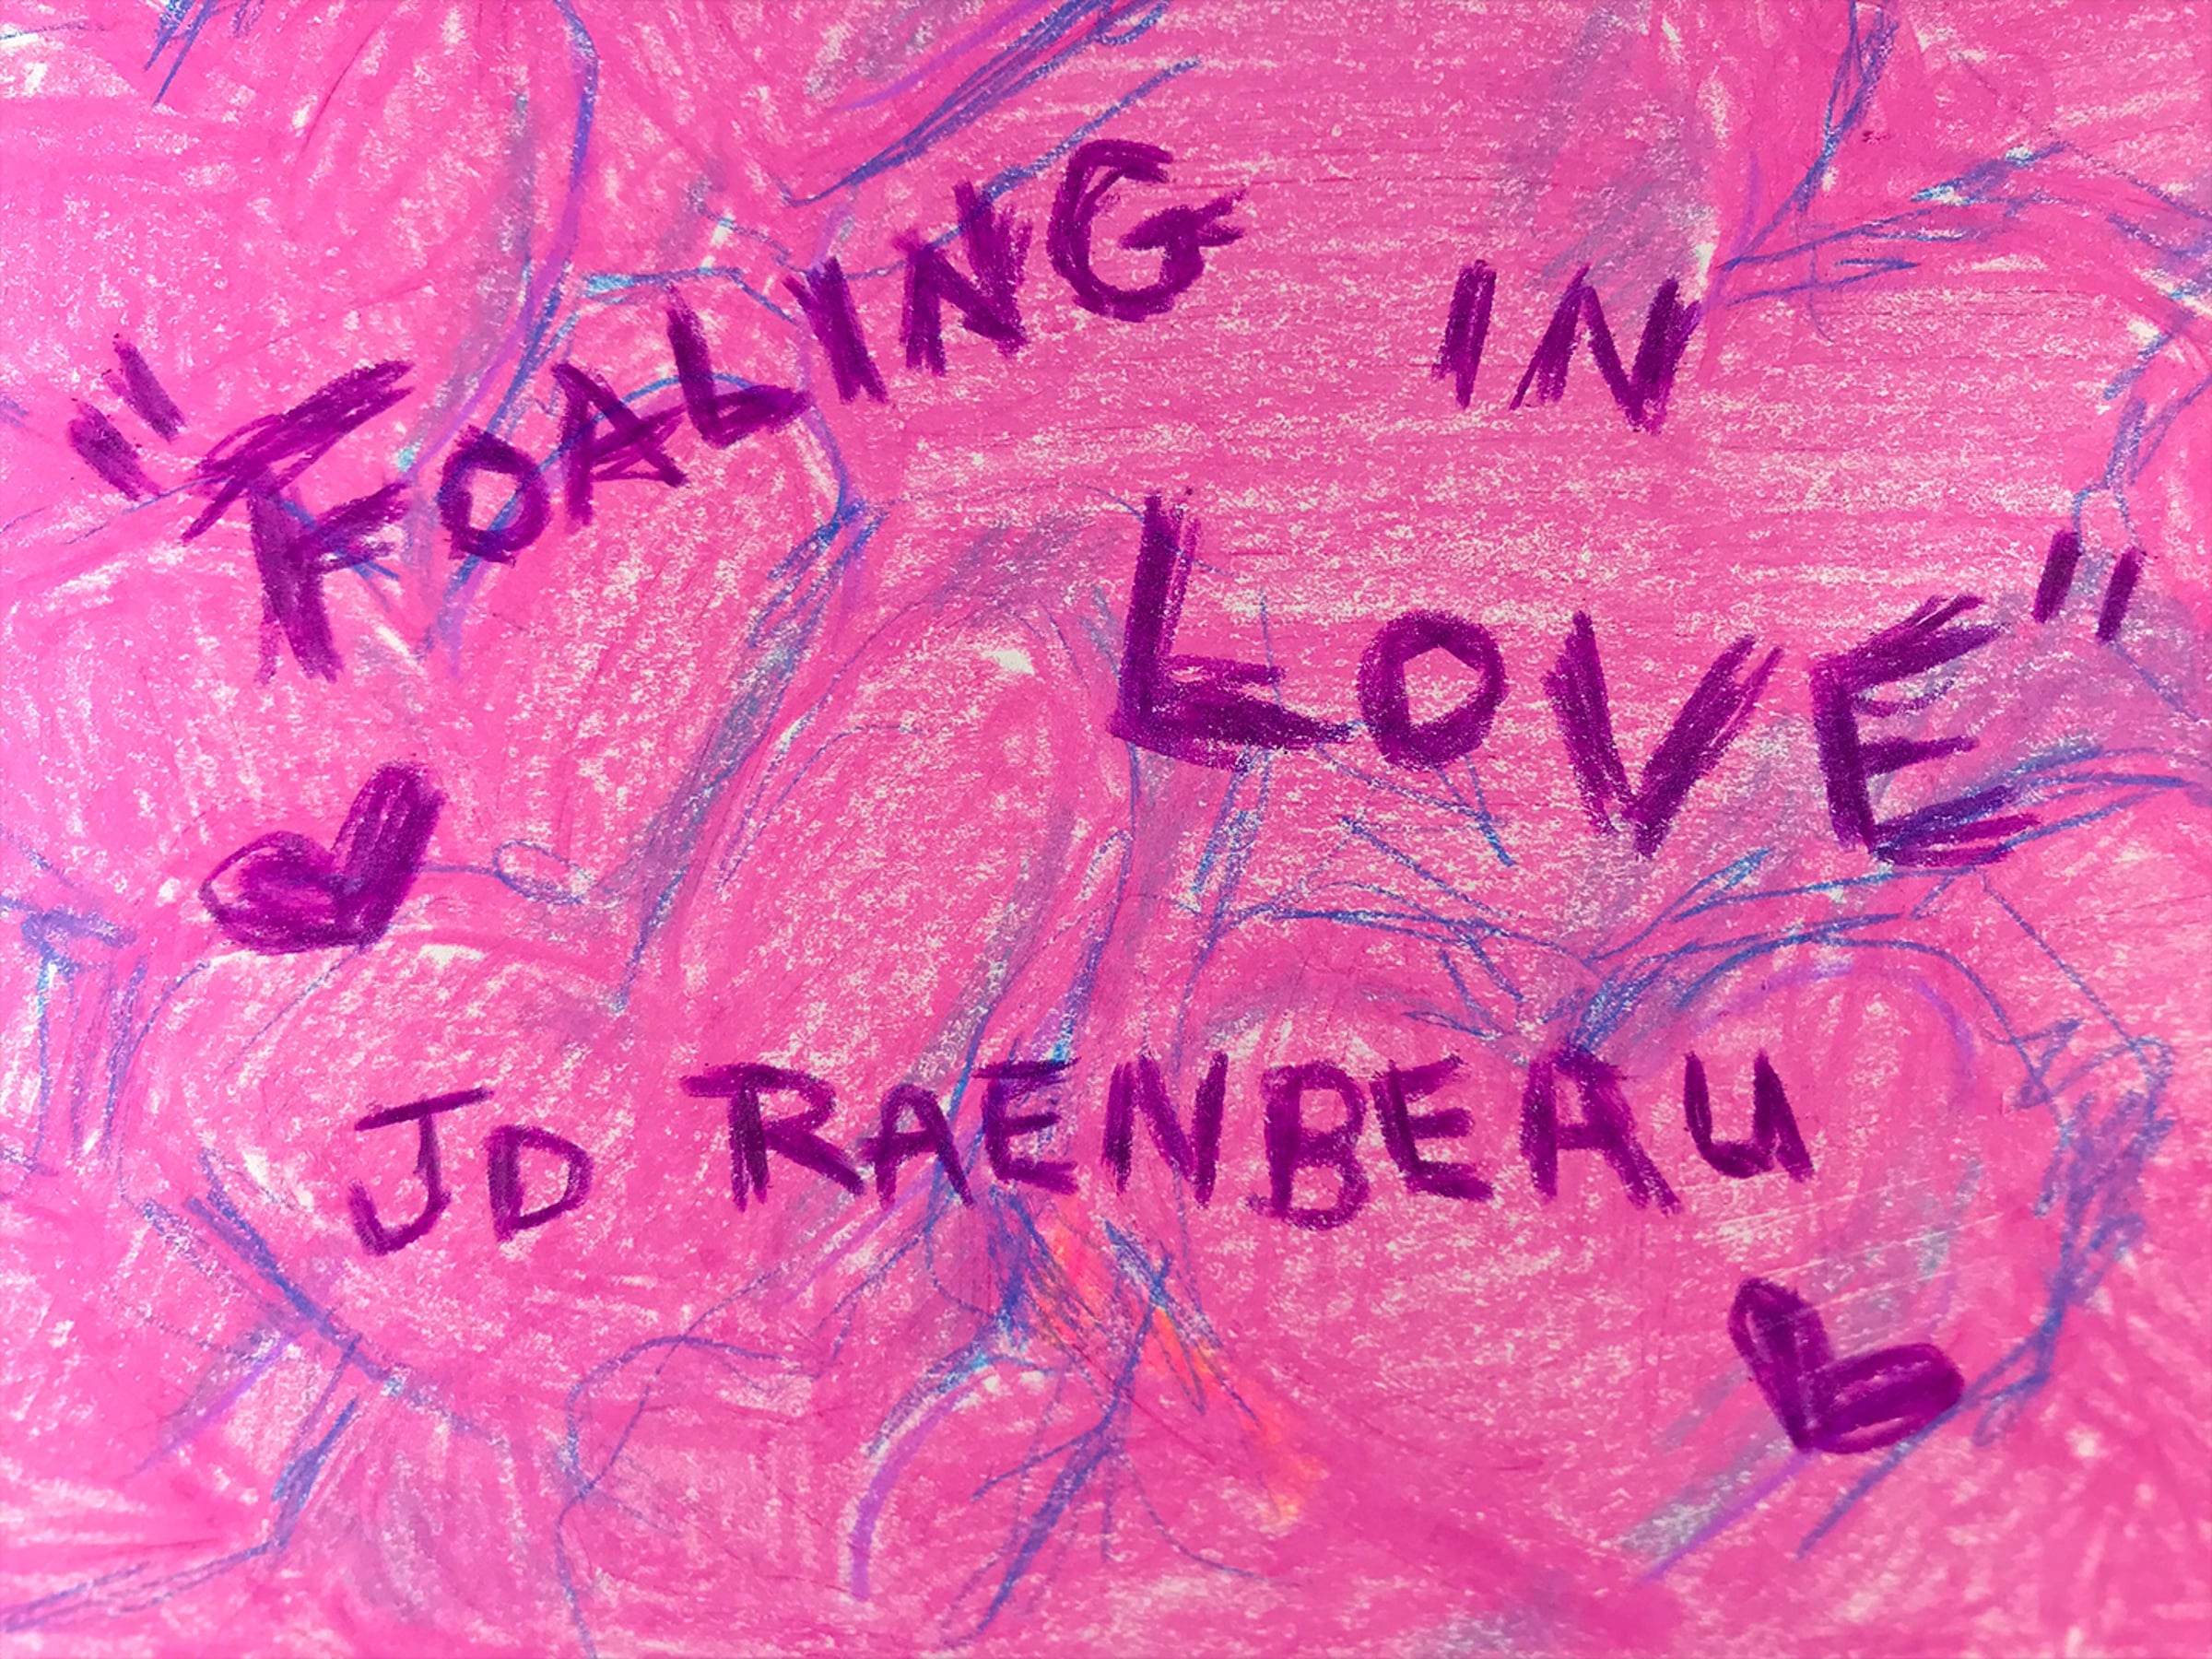 "FOALING IN
LOVE"
JD RAENBEAU